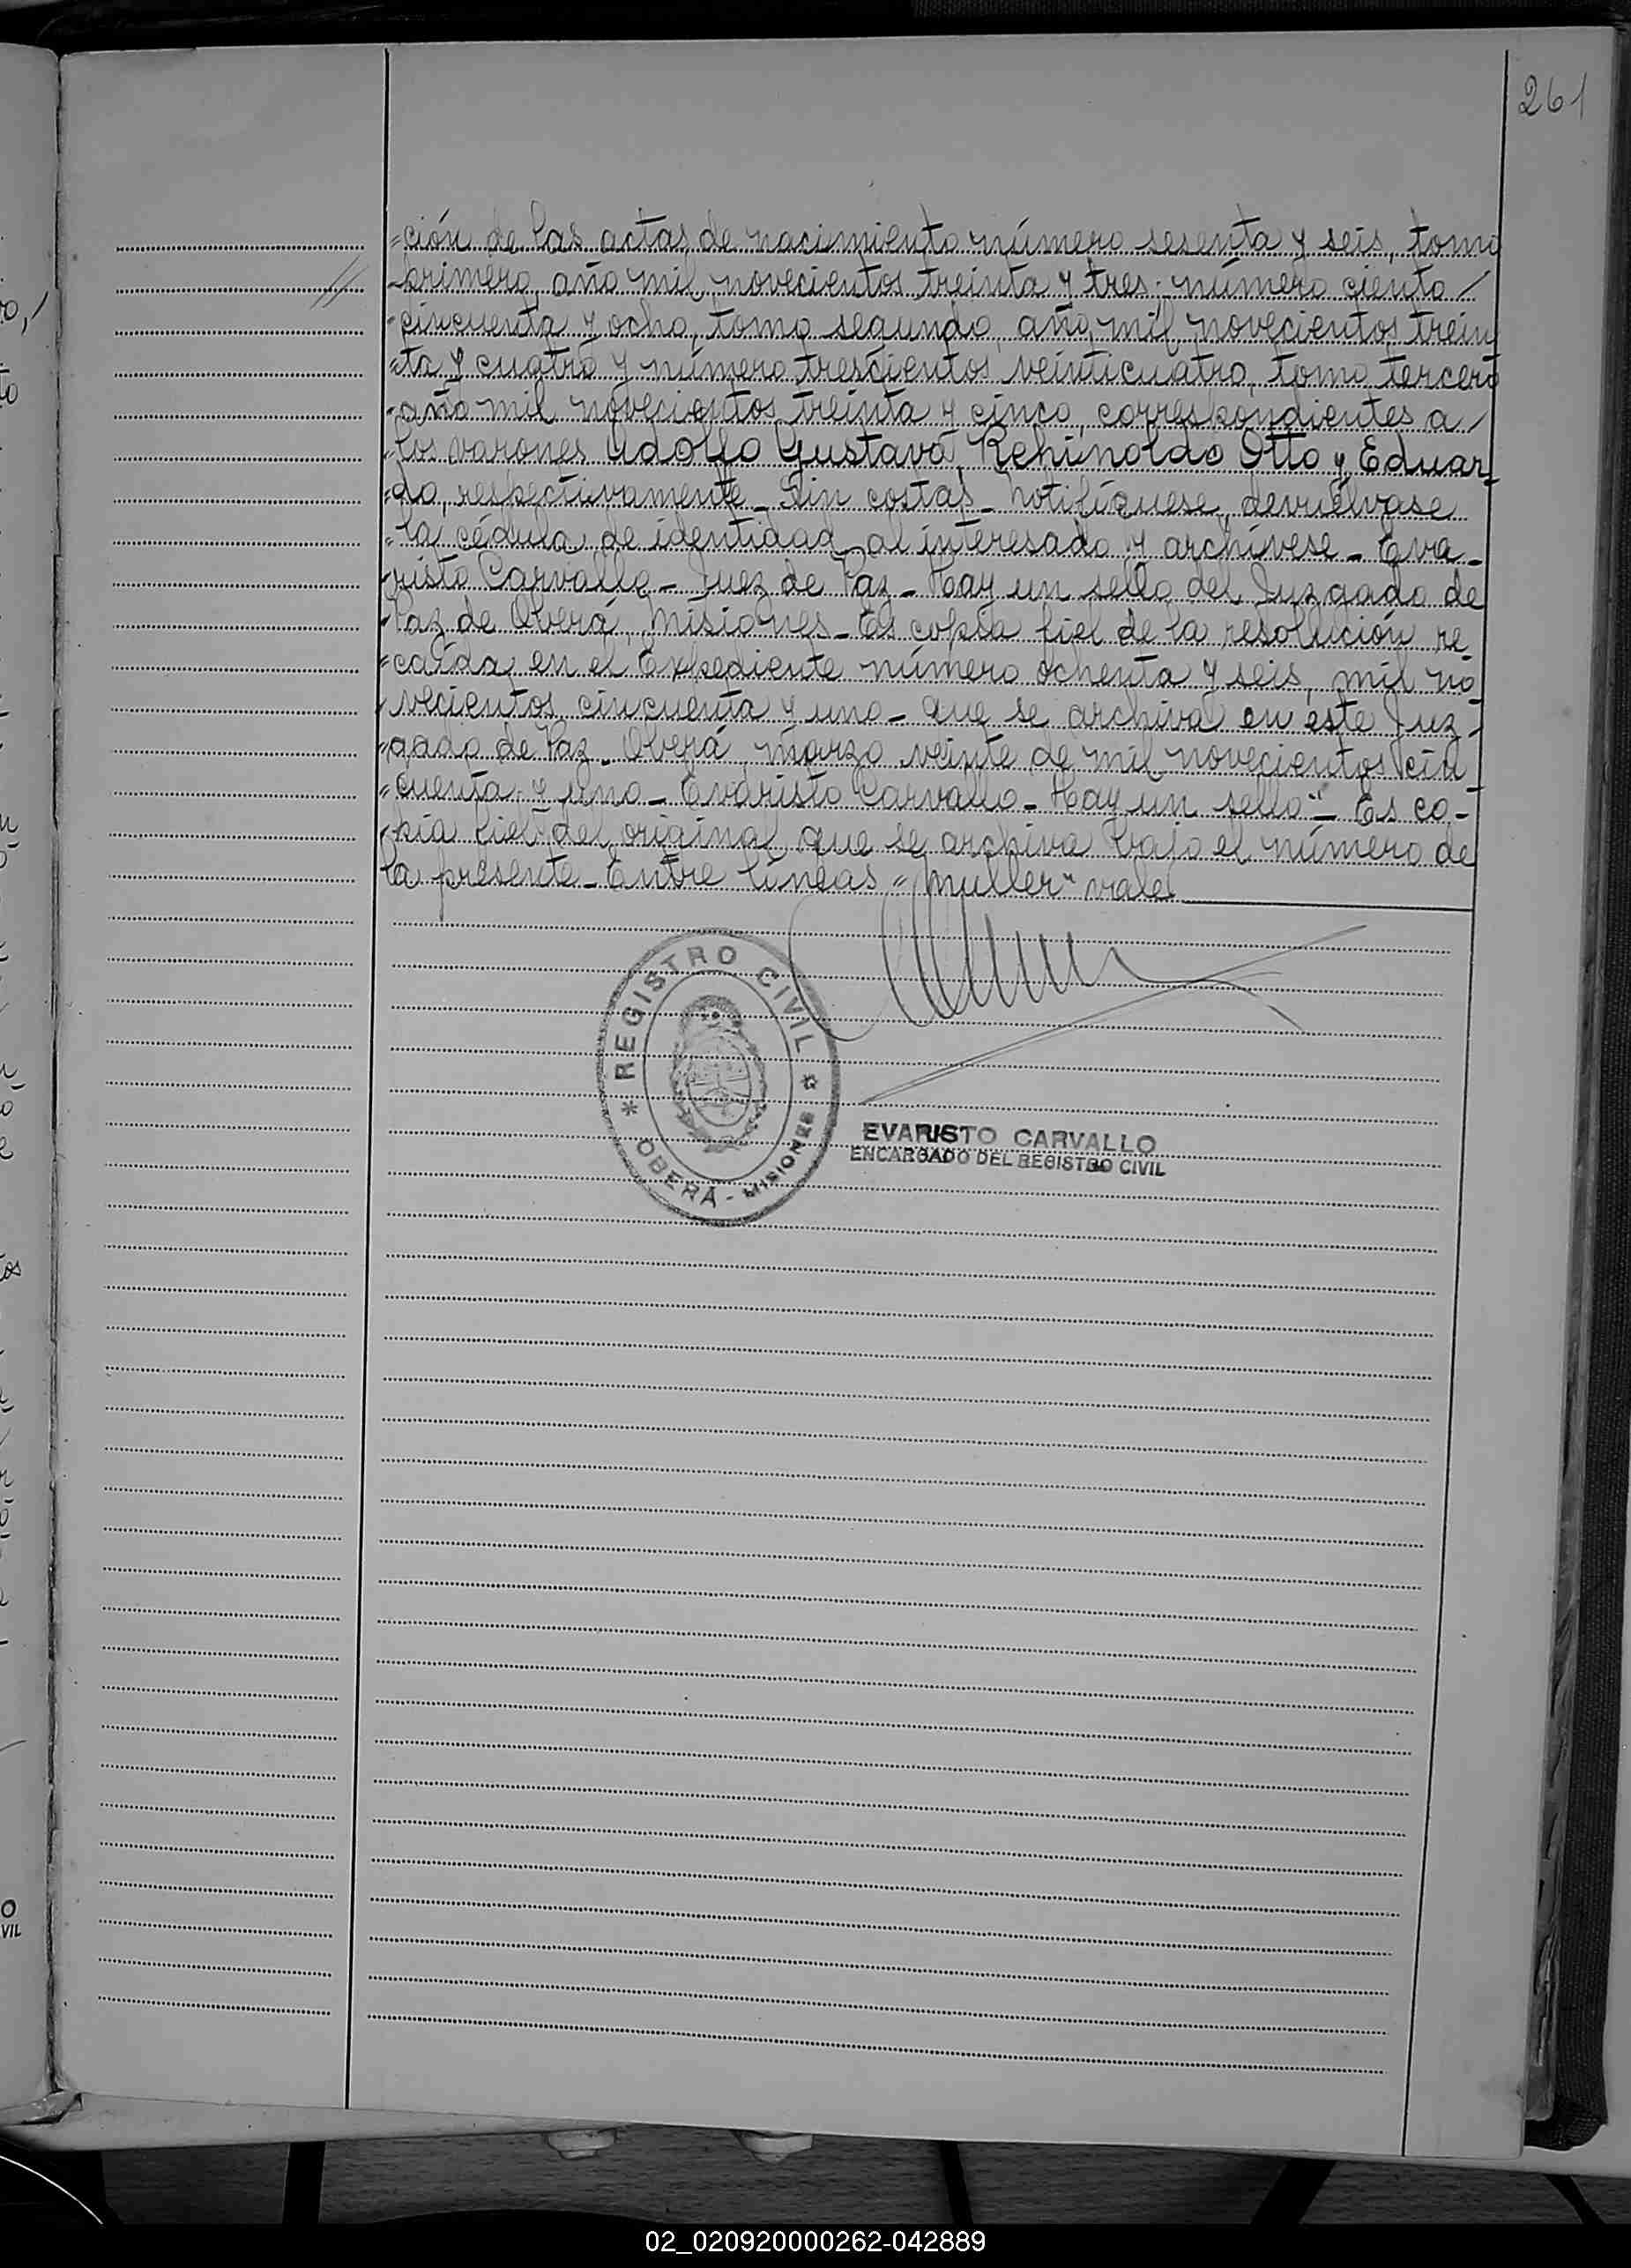 261
=ción de las actas de nacimiento número sesenta y seis, tomo
primero, año mil novecientos treinta y tres; número ciento /
cincuenta y ocho, tomo segundo, año mil novecientos trein
=ta y cuatro y número trescientos veinticuatro, tomo tercero
año mil novecientos treinta y cinco, correspondientes a /
los varones Adolfo Gustavo, Rehinoldo Otto y Eduar-
=do, respectivamente_ Sin costas_ Notifíquese, devuélvase
la cédula de identidad al interesado y archívese_ Eva_
risto Carvallo_ Juez de Paz_ Hay un sello del Juzgado de
Paz de Oberá, Misiones_ Es copia fiel de la resolución re_
=caída en el Expediente número ochenta y seis, mil no
vecientos cincuenta y uno_ que se archiva en este Juz-
=gado de Paz_ Oberá, marzo veinte de mil novecientos cin
=cuenta y uno_ Evaristo Carvallo_ Hay un sello"_ Es co-
pia fiel del original que se archiva bajo el número de
la presente_ Entre líneas "Muller" vale
REGISTRO CIVIL
OBERÁ - MISIONES
EVARISTO CARVALLO
ENCARGADO DEL REGISTRO CIVIL
02_020920000262-042889